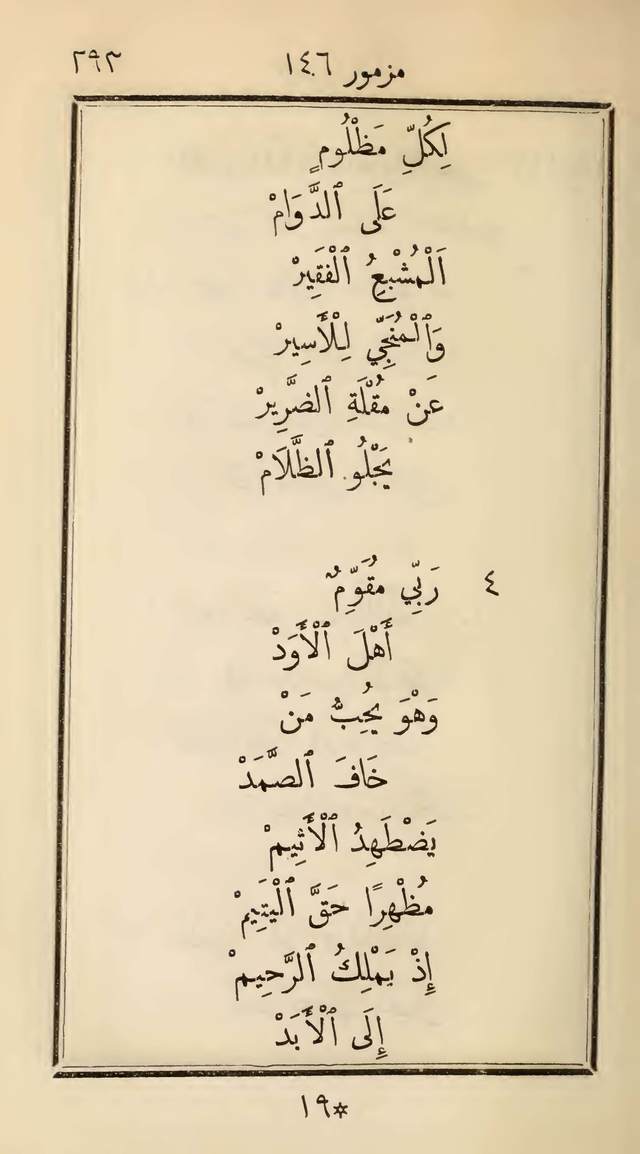 مزمور ١٤٦ ٢٩٣
لِكُلِّ مَظْلُومٍ
عَلَى ٱلدَّوَامْ
اَلْمُشْبِعُ ٱلْفَقِيرْ
وَٱلْمُنَجِّي لِلْأَسِيرْ
عَنْ مُقْلَةِ ٱلضَّرِيرْ
يَجْلُو ٱلظَّلَامْ
٤ رَبِّي مُقَوِّمٌ
أَهْلَ ٱلْأَوَدْ
وَهْوَ يُحِبُّ مَنْ
خَافَ ٱلصَّمَدْ
يَضْطَهِدُ ٱلْأَثِيمْ
مُظْهِرًا حَقَّ ٱلْيَتِيمْ
إِذْ يَمْلِكُ ٱلرَّحِيمْ
إِلَى ٱلْأَبَدْ
*١٩